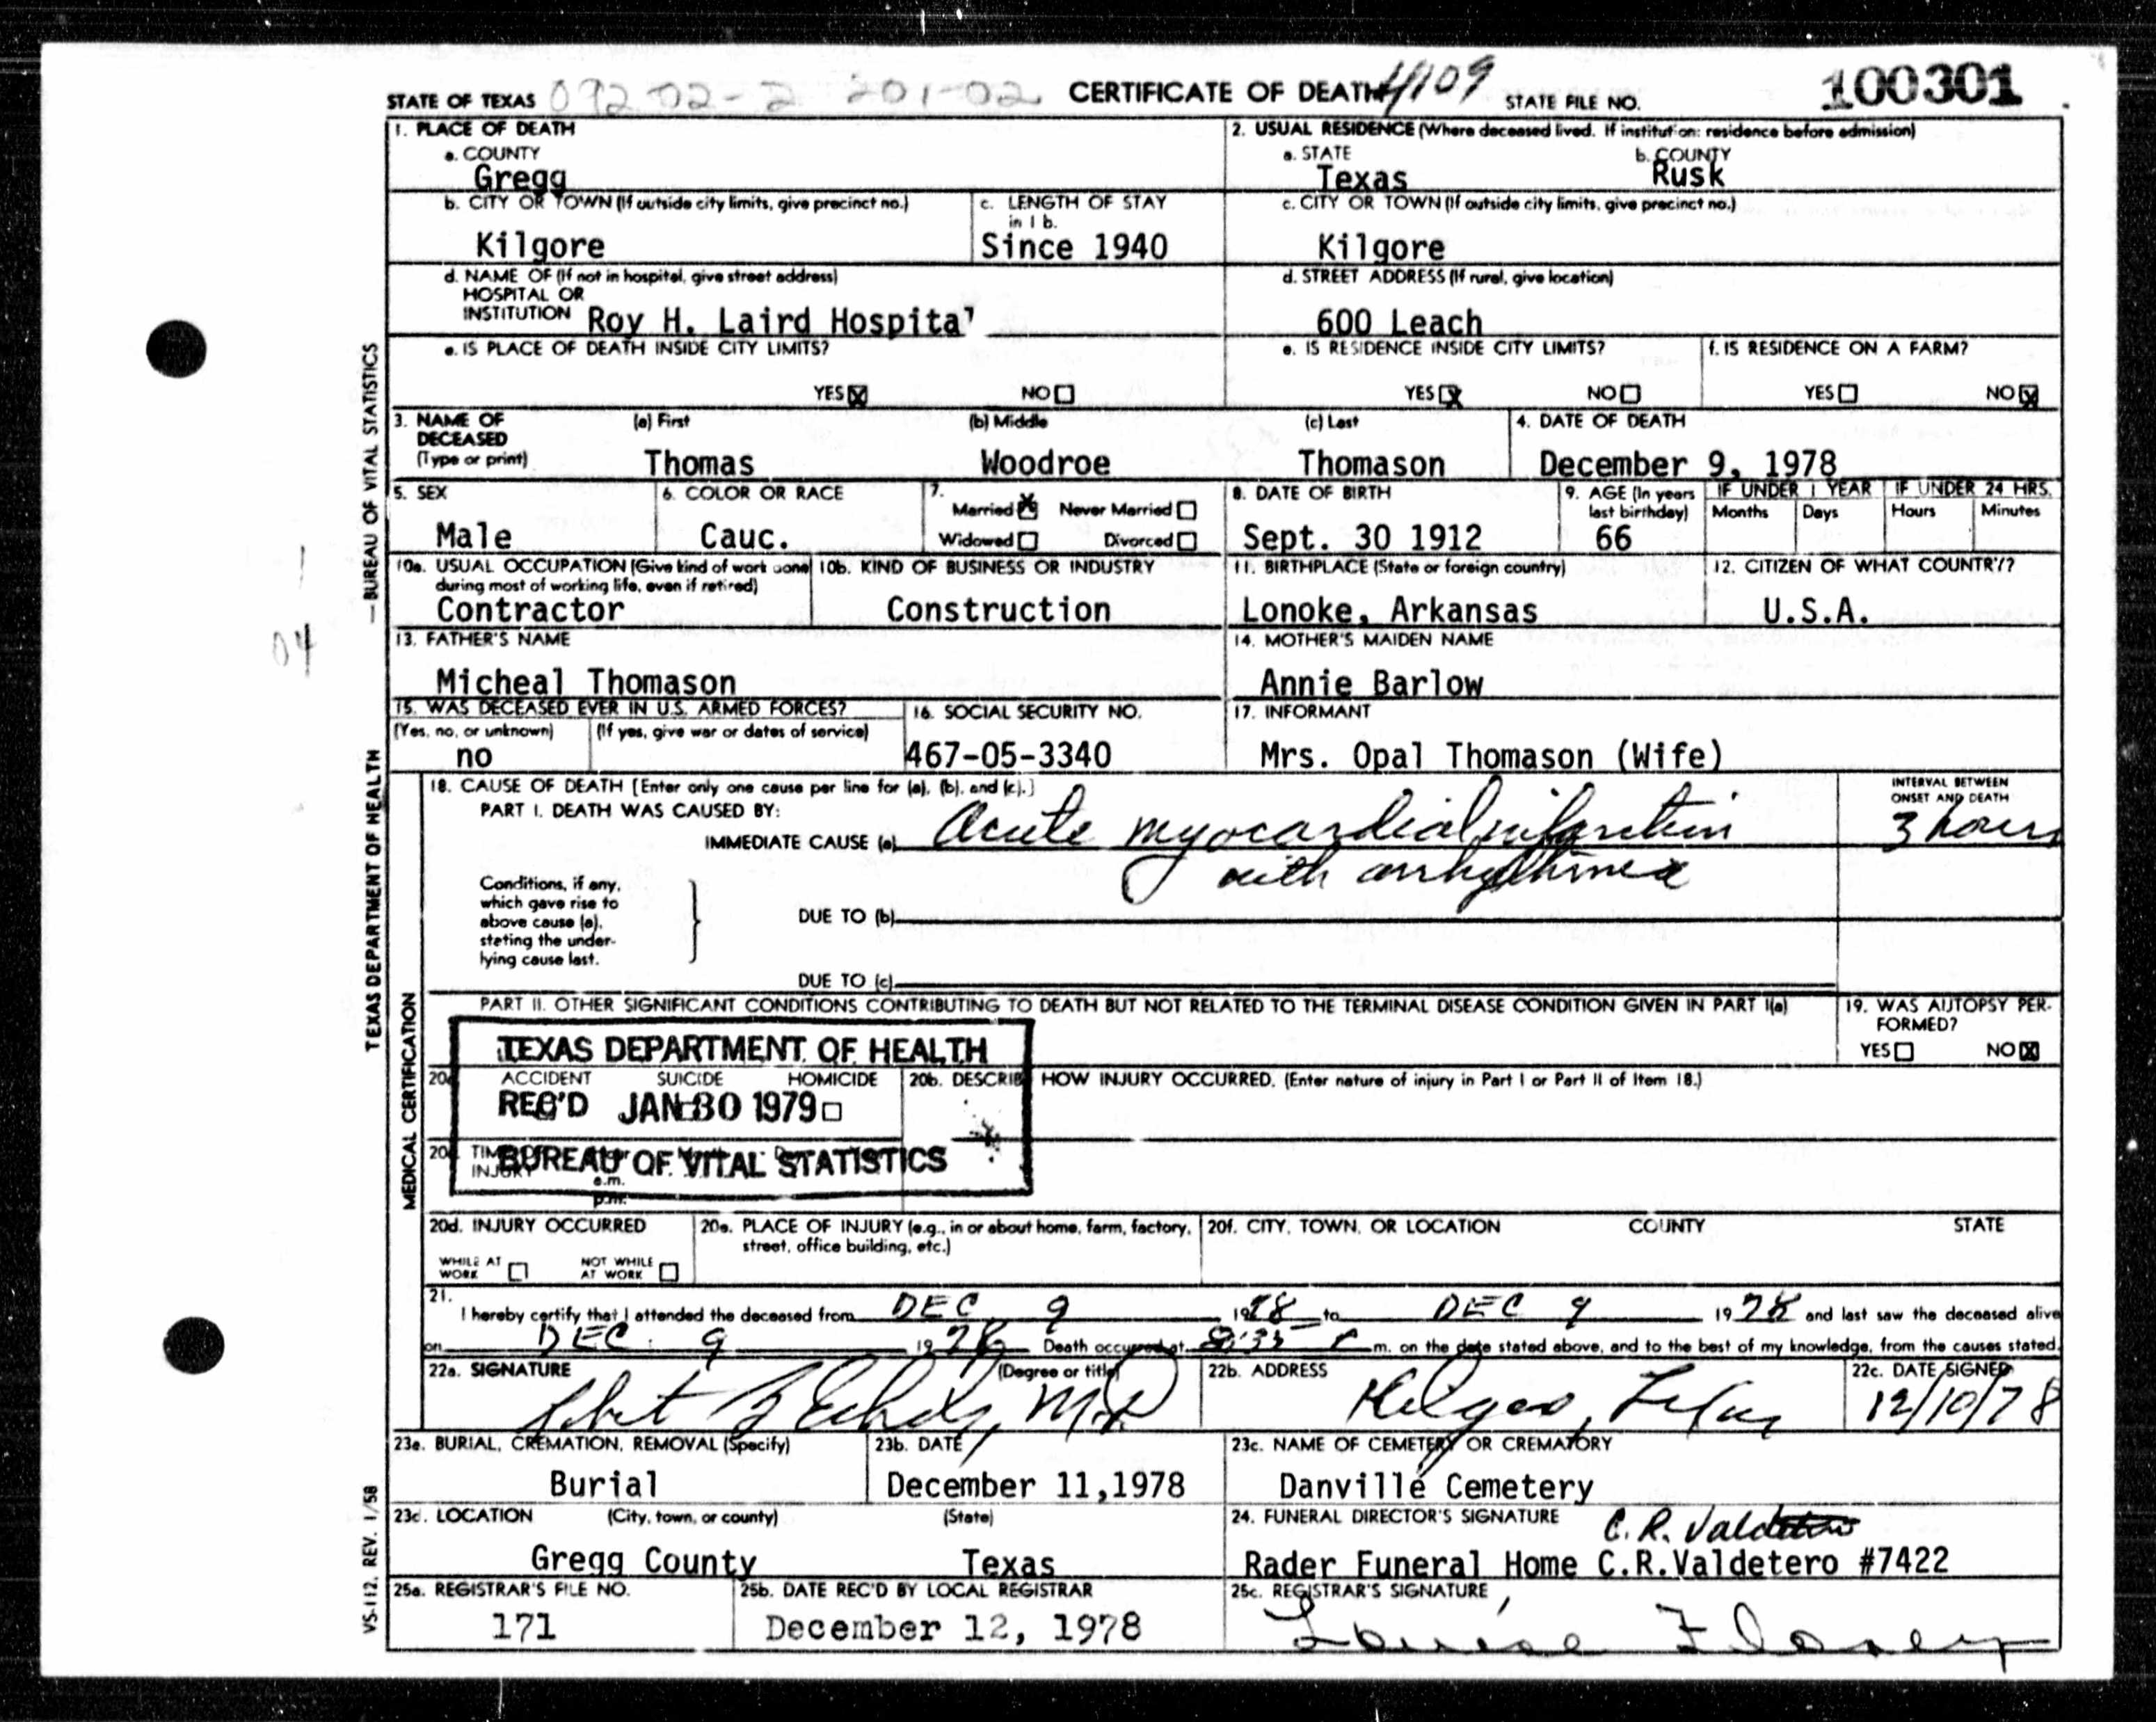 STATE OF TEXAS 09202-2 201-02 CERTIFICATE OF DEATH 4109 STATE FILE NO. 100301
1. PLACE OF DEATH
a. COUNTY
Gregg
2. USUAL RESIDENCE (Where deceased lived. If institution: residence before admission)
a. STATE b. COUNTY
Texas Rusk
b. CITY OR TOWN (If outside city limits, give precinct no.)
Kilgore
c. LENGTH OF STAY
in 1 b.
Since 1940
c. CITY OR TOWN (If outside city limits, give precinct no.)
Kilgore
d. NAME OF (If not in hospital, give street address)
HOSPITAL OR
INSTITUTION Roy H. Laird Hospital
d. STREET ADDRESS (If rural, give location)
600 Leach
e. IS PLACE OF DEATH INSIDE CITY LIMITS?
YES NO
e. IS RESIDENCE INSIDE CITY LIMITS?
YES NO
f. IS RESIDENCE ON A FARM?
YES NO
3. NAME OF (a) First (b) Middle (c) Last
DECEASED
(Type or print) Thomas Woodroe Thomason
4. DATE OF DEATH
December 9, 1978
5. SEX
Male
6. COLOR OR RACE
Cauc.
7.
Married Never Married
Widowed Divorced
8. DATE OF BIRTH
Sept. 30 1912
9. AGE (In years
last birthday)
66
IF UNDER 1 YEAR
Months Days
IF UNDER 24 HRS.
Hours Minutes
10a. USUAL OCCUPATION (Give kind of work done
during most of working life, even if retired)
Contractor
10b. KIND OF BUSINESS OR INDUSTRY
Construction
11. BIRTHPLACE (State or foreign country)
Lonoke, Arkansas
12. CITIZEN OF WHAT COUNTRY?
U.S.A.
13. FATHER'S NAME
Micheal Thomason
14. MOTHER'S MAIDEN NAME
Annie Barlow
15. WAS DECEASED EVER IN U.S. ARMED FORCES?
(Yes, no, or unknown) (If yes, give war or dates of service)
no
16. SOCIAL SECURITY NO.
467-05-3340
17. INFORMANT
Mrs. Opal Thomason (Wife)
18. CAUSE OF DEATH [Enter only one cause per line for (a), (b), and (c).]
PART I. DEATH WAS CAUSED BY:
IMMEDIATE CAUSE (a) Acute myocardial infarction
with arrhythmia
INTERVAL BETWEEN
ONSET AND DEATH
3 hours
Conditions, if any,
which gave rise to
above cause (a),
stating the under-
lying cause last.
DUE TO (b)
DUE TO (c)
PART II. OTHER SIGNIFICANT CONDITIONS CONTRIBUTING TO DEATH BUT NOT RELATED TO THE TERMINAL DISEASE CONDITION GIVEN IN PART I(a)
19. WAS AUTOPSY PER-
FORMED?
YES NO
TEXAS DEPARTMENT OF HEALTH
REC'D JAN 30 1979
BUREAU OF VITAL STATISTICS
20a ACCIDENT SUICIDE HOMICIDE
20b. DESCRIBE HOW INJURY OCCURRED. (Enter nature of injury in Part I or Part II of Item 18.)
20c TIME
INJURY
a.m.
p.m.
20d. INJURY OCCURRED
WHILE AT
WORK
NOT WHILE
AT WORK
20e. PLACE OF INJURY (e.g., in or about home, farm, factory,
street, office building, etc.)
20f. CITY, TOWN, OR LOCATION COUNTY STATE
21.
I hereby certify that I attended the deceased from DEC 9 1978 to DEC 9 1978 and last saw the deceased alive
on DEC 9 1978 Death occurred at 8:35 P m. on the date stated above, and to the best of my knowledge, from the causes stated.
22a. SIGNATURE (Degree or title)
M.D.
22b. ADDRESS
Kilgore, Texas
22c. DATE SIGNED
12/10/78
23a. BURIAL, CREMATION, REMOVAL (Specify)
Burial
23b. DATE
December 11,1978
23c. NAME OF CEMETERY OR CREMATORY
Danville Cemetery
23d. LOCATION (City, town, or county) (State)
Gregg County Texas
24. FUNERAL DIRECTOR'S SIGNATURE C. R. Valdetero
Rader Funeral Home C.R.Valdetero #7422
25a. REGISTRAR'S FILE NO.
171
25b. DATE REC'D BY LOCAL REGISTRAR
December 12, 1978
25c. REGISTRAR'S SIGNATURE
Louise
TEXAS DEPARTMENT OF HEALTH — BUREAU OF VITAL STATISTICS
MEDICAL CERTIFICATION
VS-112, REV. 1/58
04